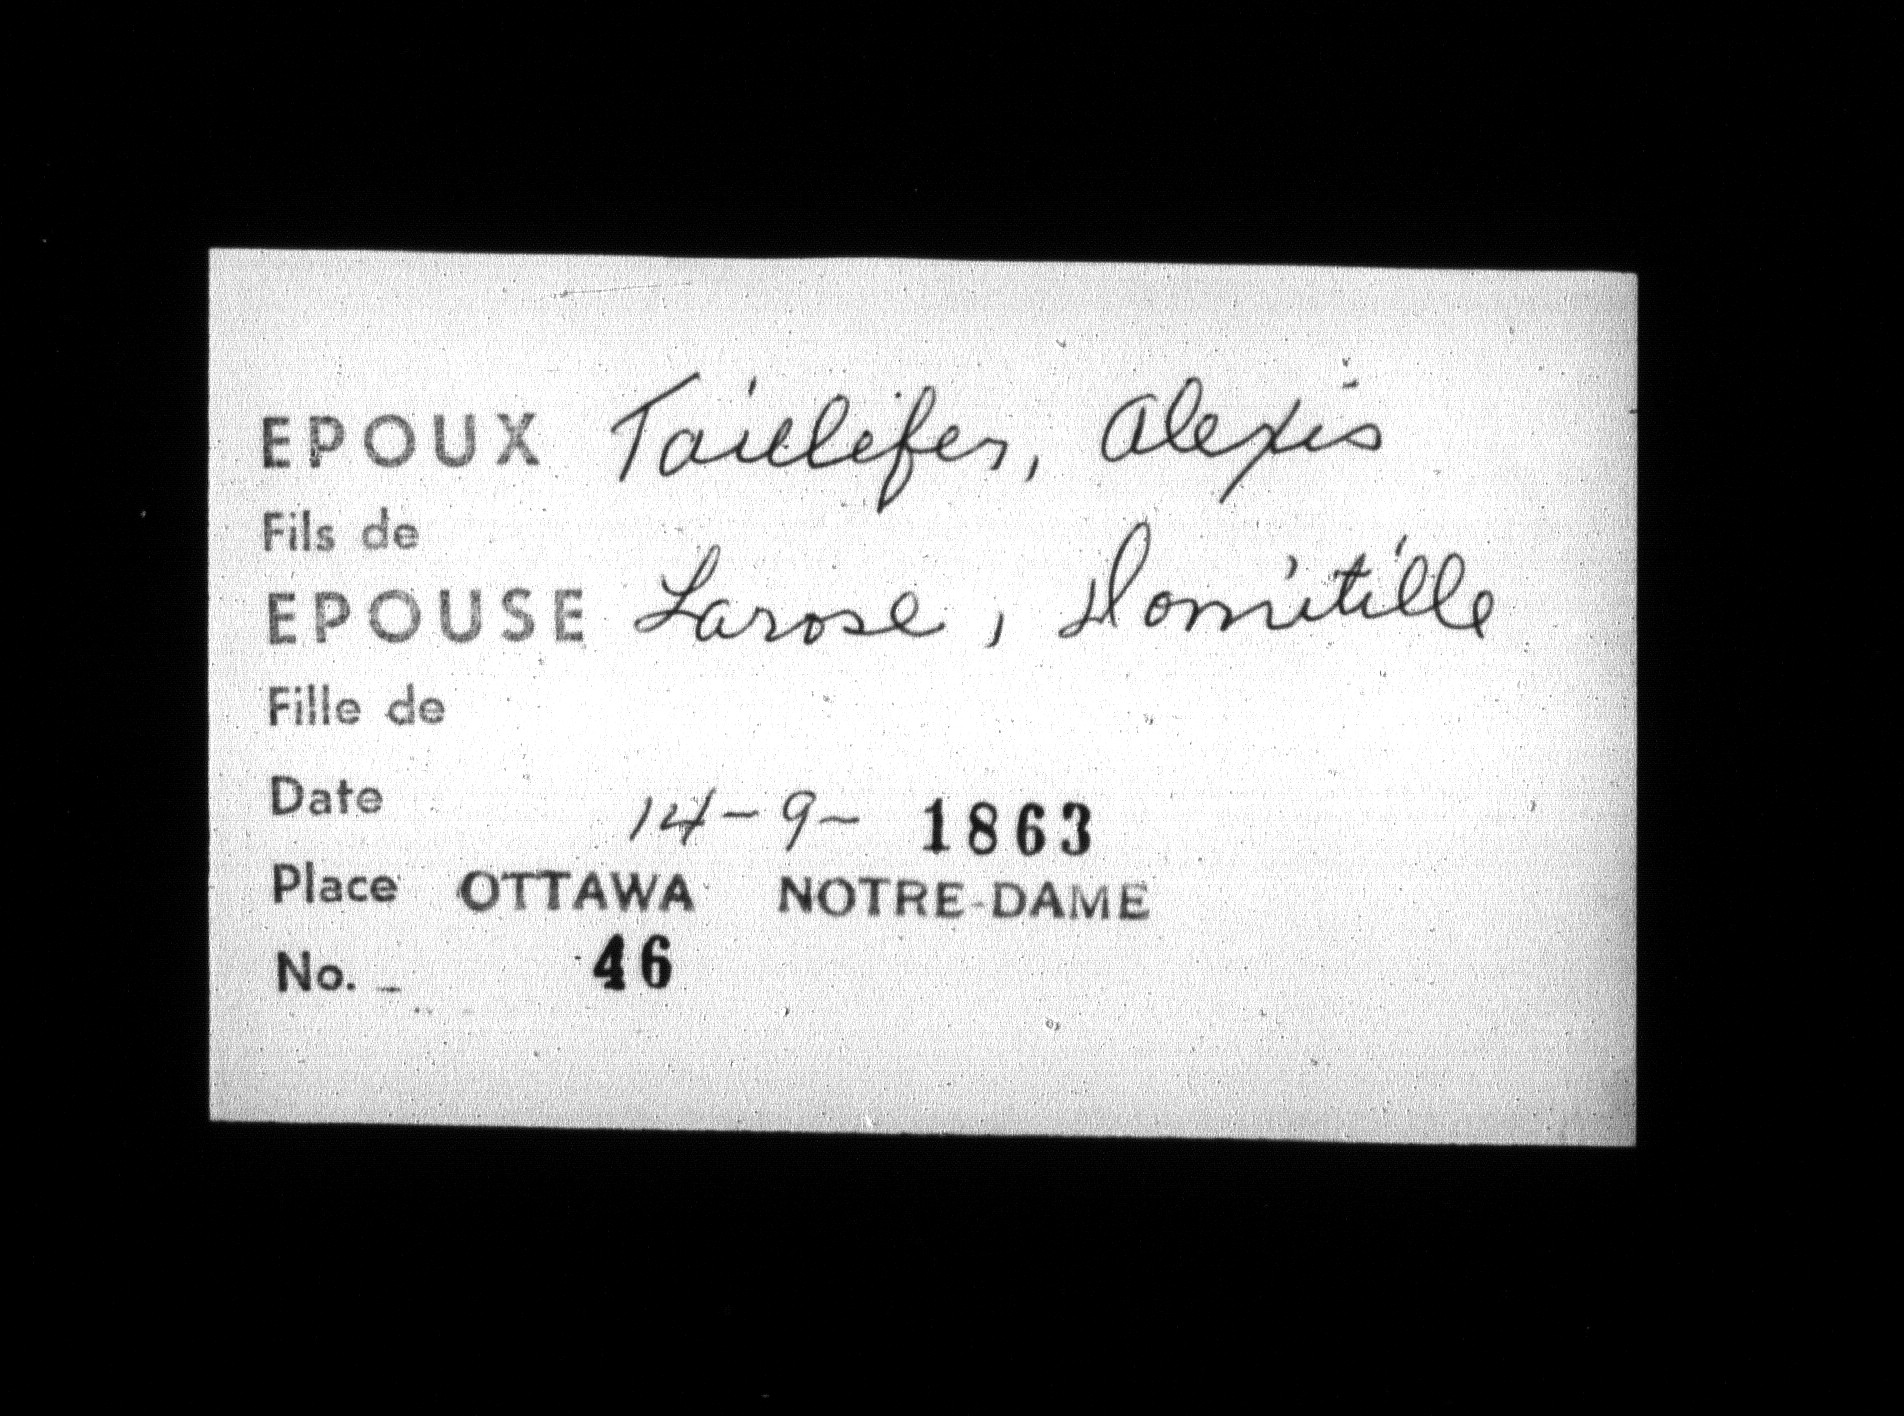 EPOUX Taillefer, Alexis
Fils de
EPOUSE Larose, Domitille
Fille de
Date 14-9- 1863
Place OTTAWA NOTRE-DAME
No. 46